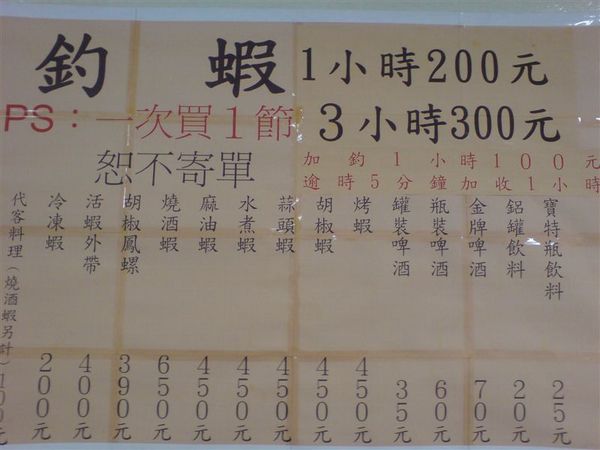 釣蝦 1小時200元
PS：一次買1節 3小時300元
恕不寄單
加釣1小時100元
逾時5分鐘加收1小時
寶特瓶飲料 25元
鋁罐飲料 20元
金牌啤酒 70元
瓶裝啤酒 60元
罐裝啤酒 35元
烤蝦 450元
胡椒蝦 450元
蒜頭蝦 450元
水煮蝦 450元
麻油蝦 450元
燒酒蝦 650元
胡椒鳳螺 390元
活蝦外帶 400元
冷凍蝦 200元
代客料理(燒酒蝦另計)100元